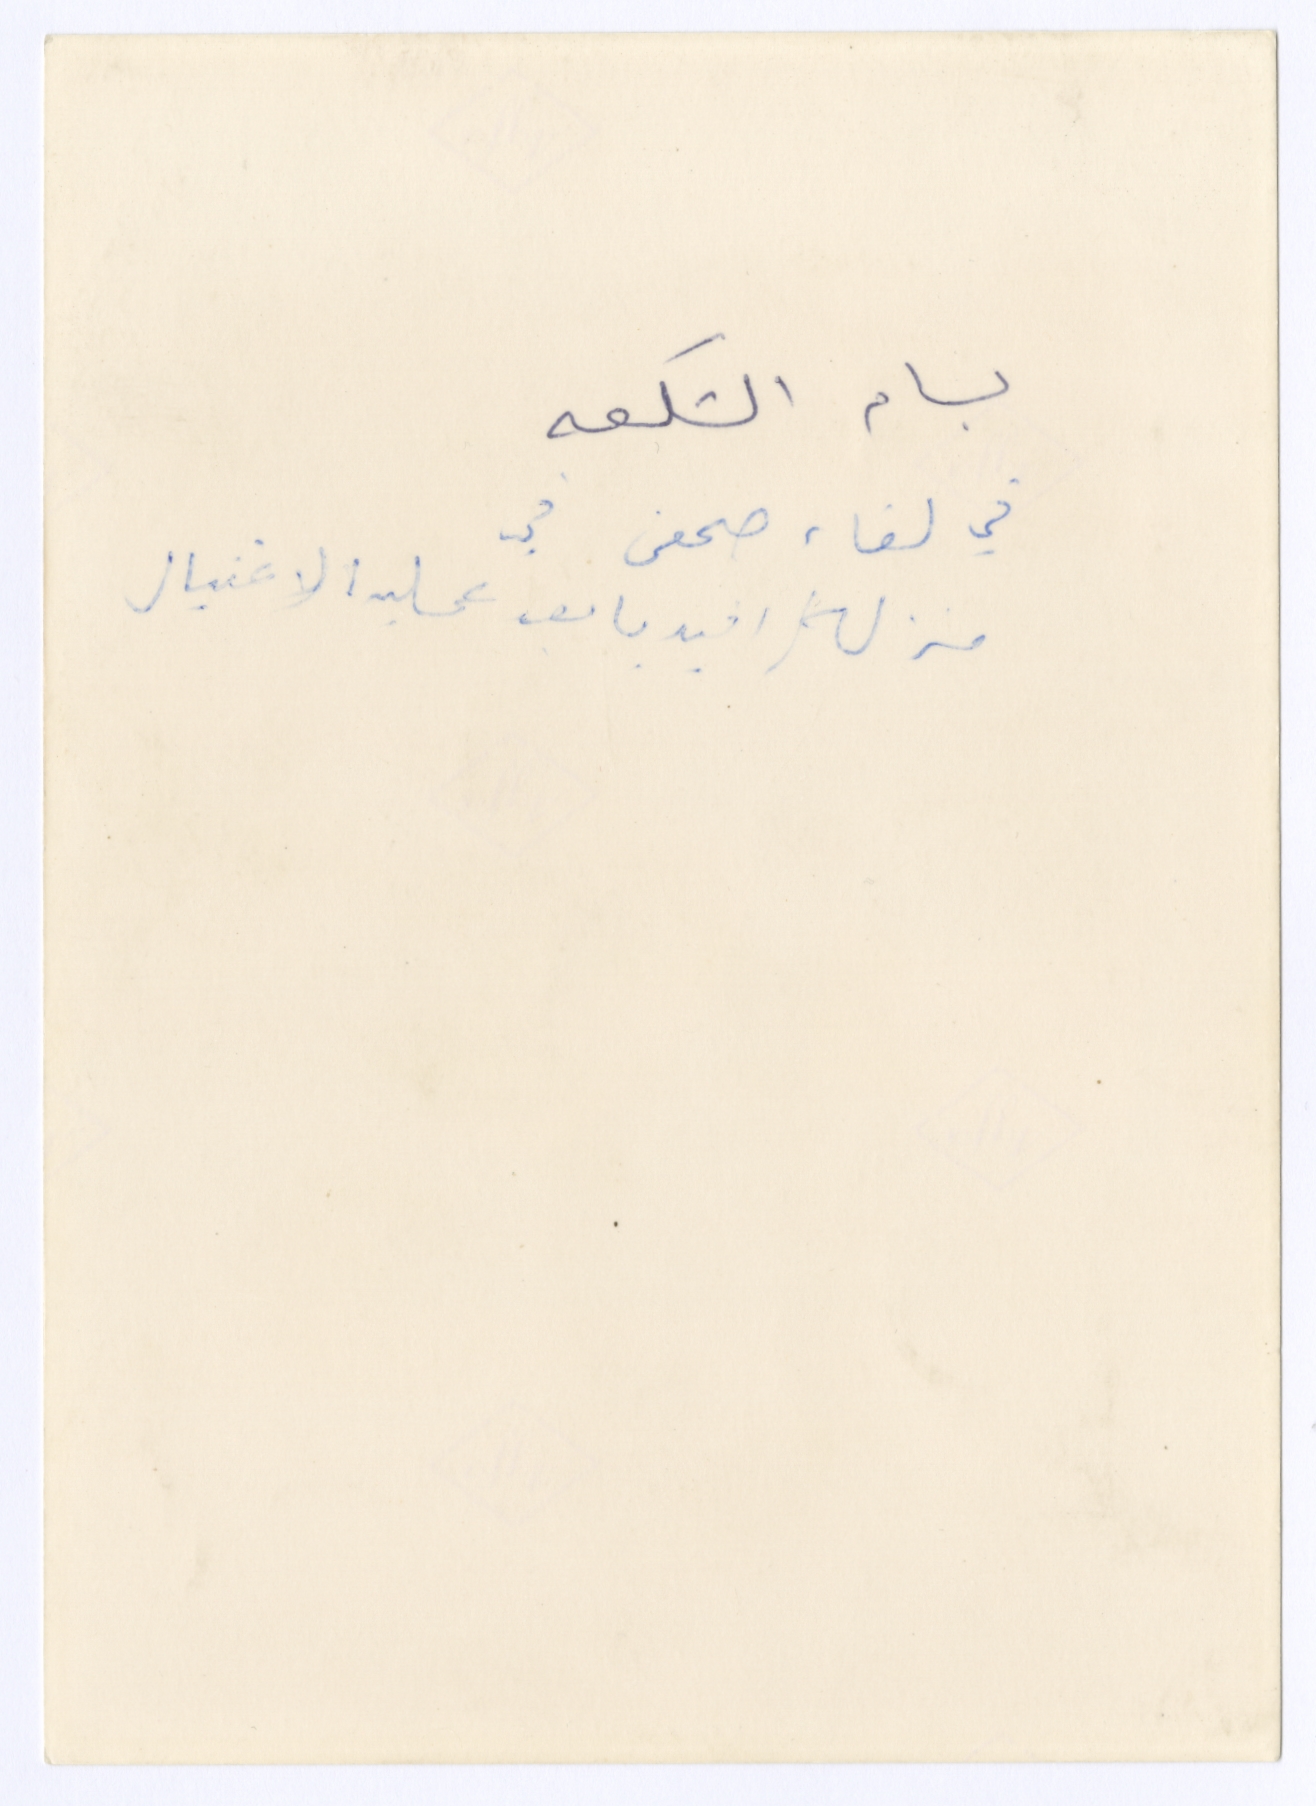 بسام الشكعه
في لقاء صحفي في
منزله بعد عمليه الاغتيال